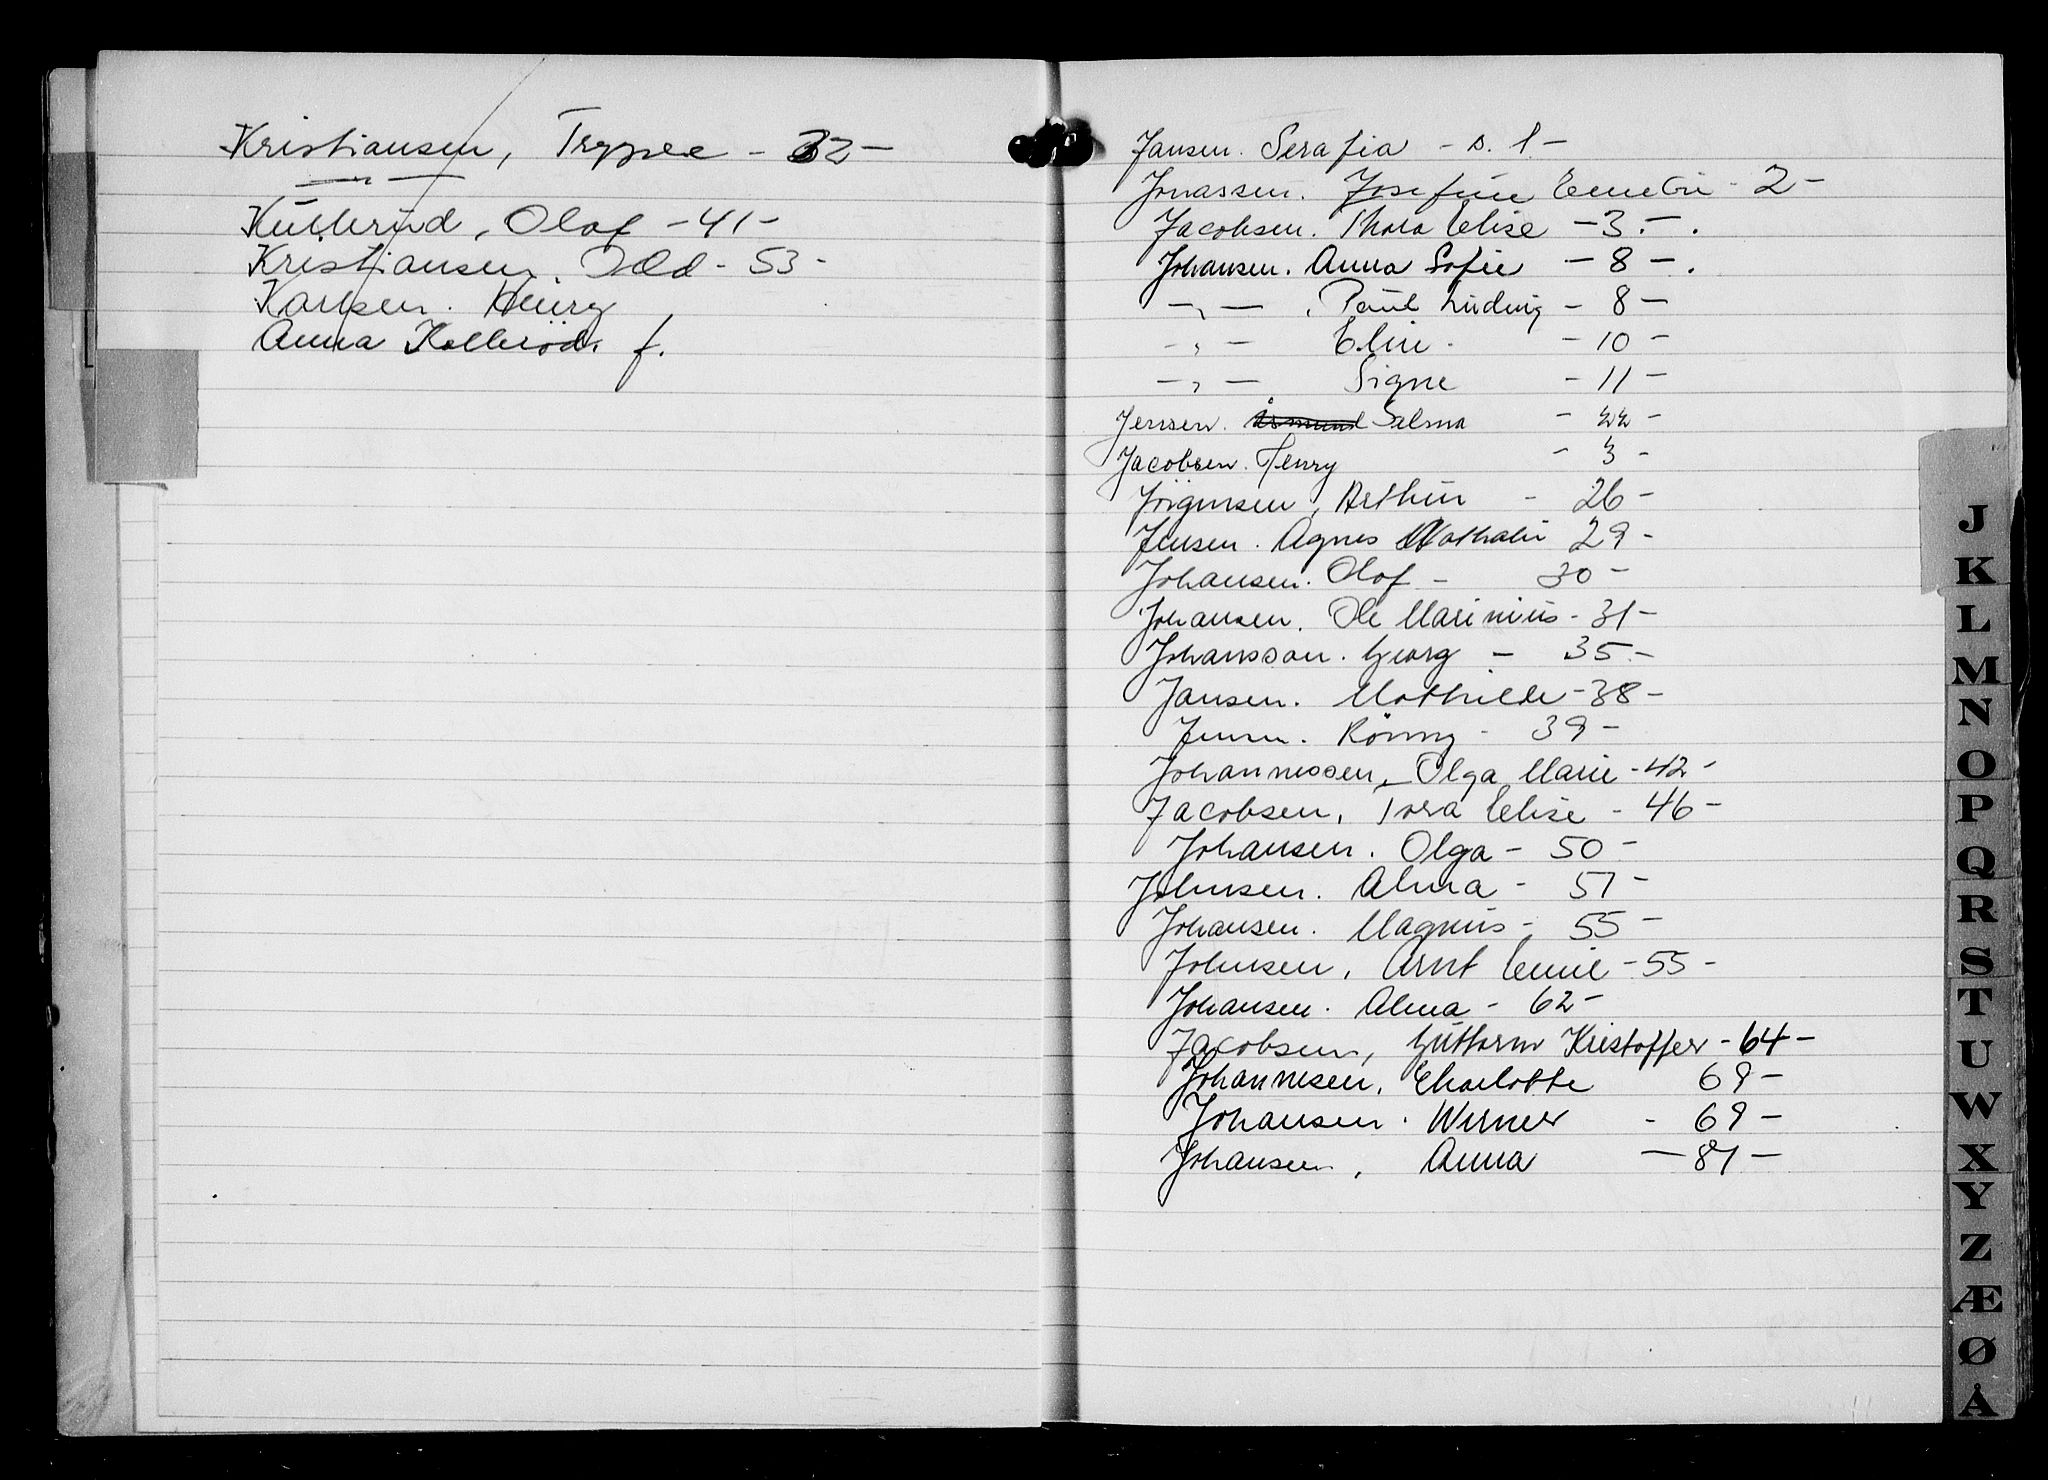 Kristiansen, Trygve - 32 -
— " —
Kullerud, Olaf - 41 -
Kristiansen, Odd - 53 -
Karlsen. Henry
Anna Kollerød. f.
Jansen. Serafia - s. 1 -
Jonassen. Josefine - 2 -
Jacobsen. Thora Elise - 3. - .
Johansen. Anna Sofie - 8 - .
- " - . Paul Ludvig - 8 -
- " - Elin. - 10 -
- " - Signe - 11 -
Jenssen. Åsmund Salma - 22 -
Jacobsen. Henry - 3 -
Jörgensen, Arthur - 26 -
Jensen. Agnes Nathalie 29 -
Johansen. Olaf - 30 -
Johansen. Ole Marinius - 31 -
Johansson. Georg - 35. -
Jansen. Mathilde - 38 -
Jensen. Rönny - 39 -
Johannessen, Olga Marie - 42 -
Jacobsen, Tora Elise - 46 -
Johansen. Olga - 50 -
Johnsen. Alma - 51 -
Johansen. Magnus - 55 -
Johnsen, Arnt Emil - 55 -
Johansen. Alma - 62 -
Jacobsen, Guttorm Kristoffer - 64 -
Johannesen, Charlotte 69 -
Johansen. Werner - 69 -
Johansen, Anna - 81 -
J
K
L
M
N
O
P
Q
R
S
T
U
W
X
Y
Z
Æ
Ø
Å